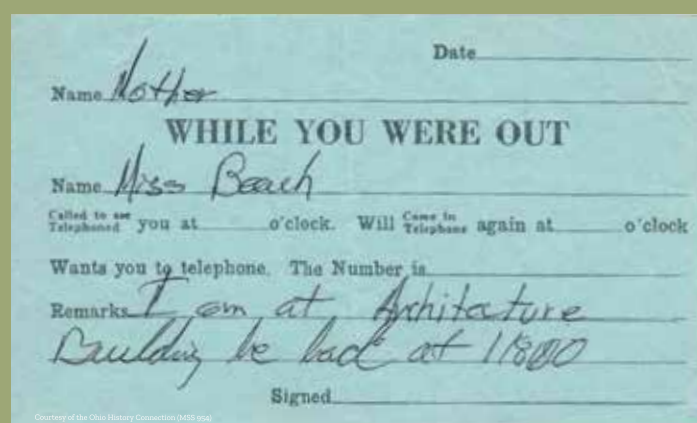 Date
Name Mother
WHILE YOU WERE OUT
Name Miss Beach
Called to see
Telephoned you at o'clock. Will Come in
Telephone again at o'clock
Wants you to telephone. The Number is
Remarks I am at Architature
Baulding be back at 11800
Signed
Courtesy of the Ohio History Connection (MSS 994)